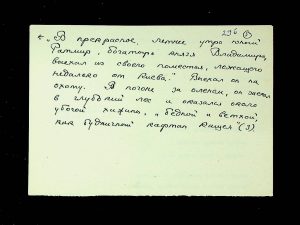 236 1
«В прекрасное, летнее утро юный
Ратмир, богатырь князя Владимира,
выехал из своего поместья, лежащего
недалеко от Киева." Выехал он на
охоту. В погоне за оленем, он заехал
в глубокий лес и оказался около
убогой хижины, „бедной и ветхой,
как будничный кафтан нищего" (3).